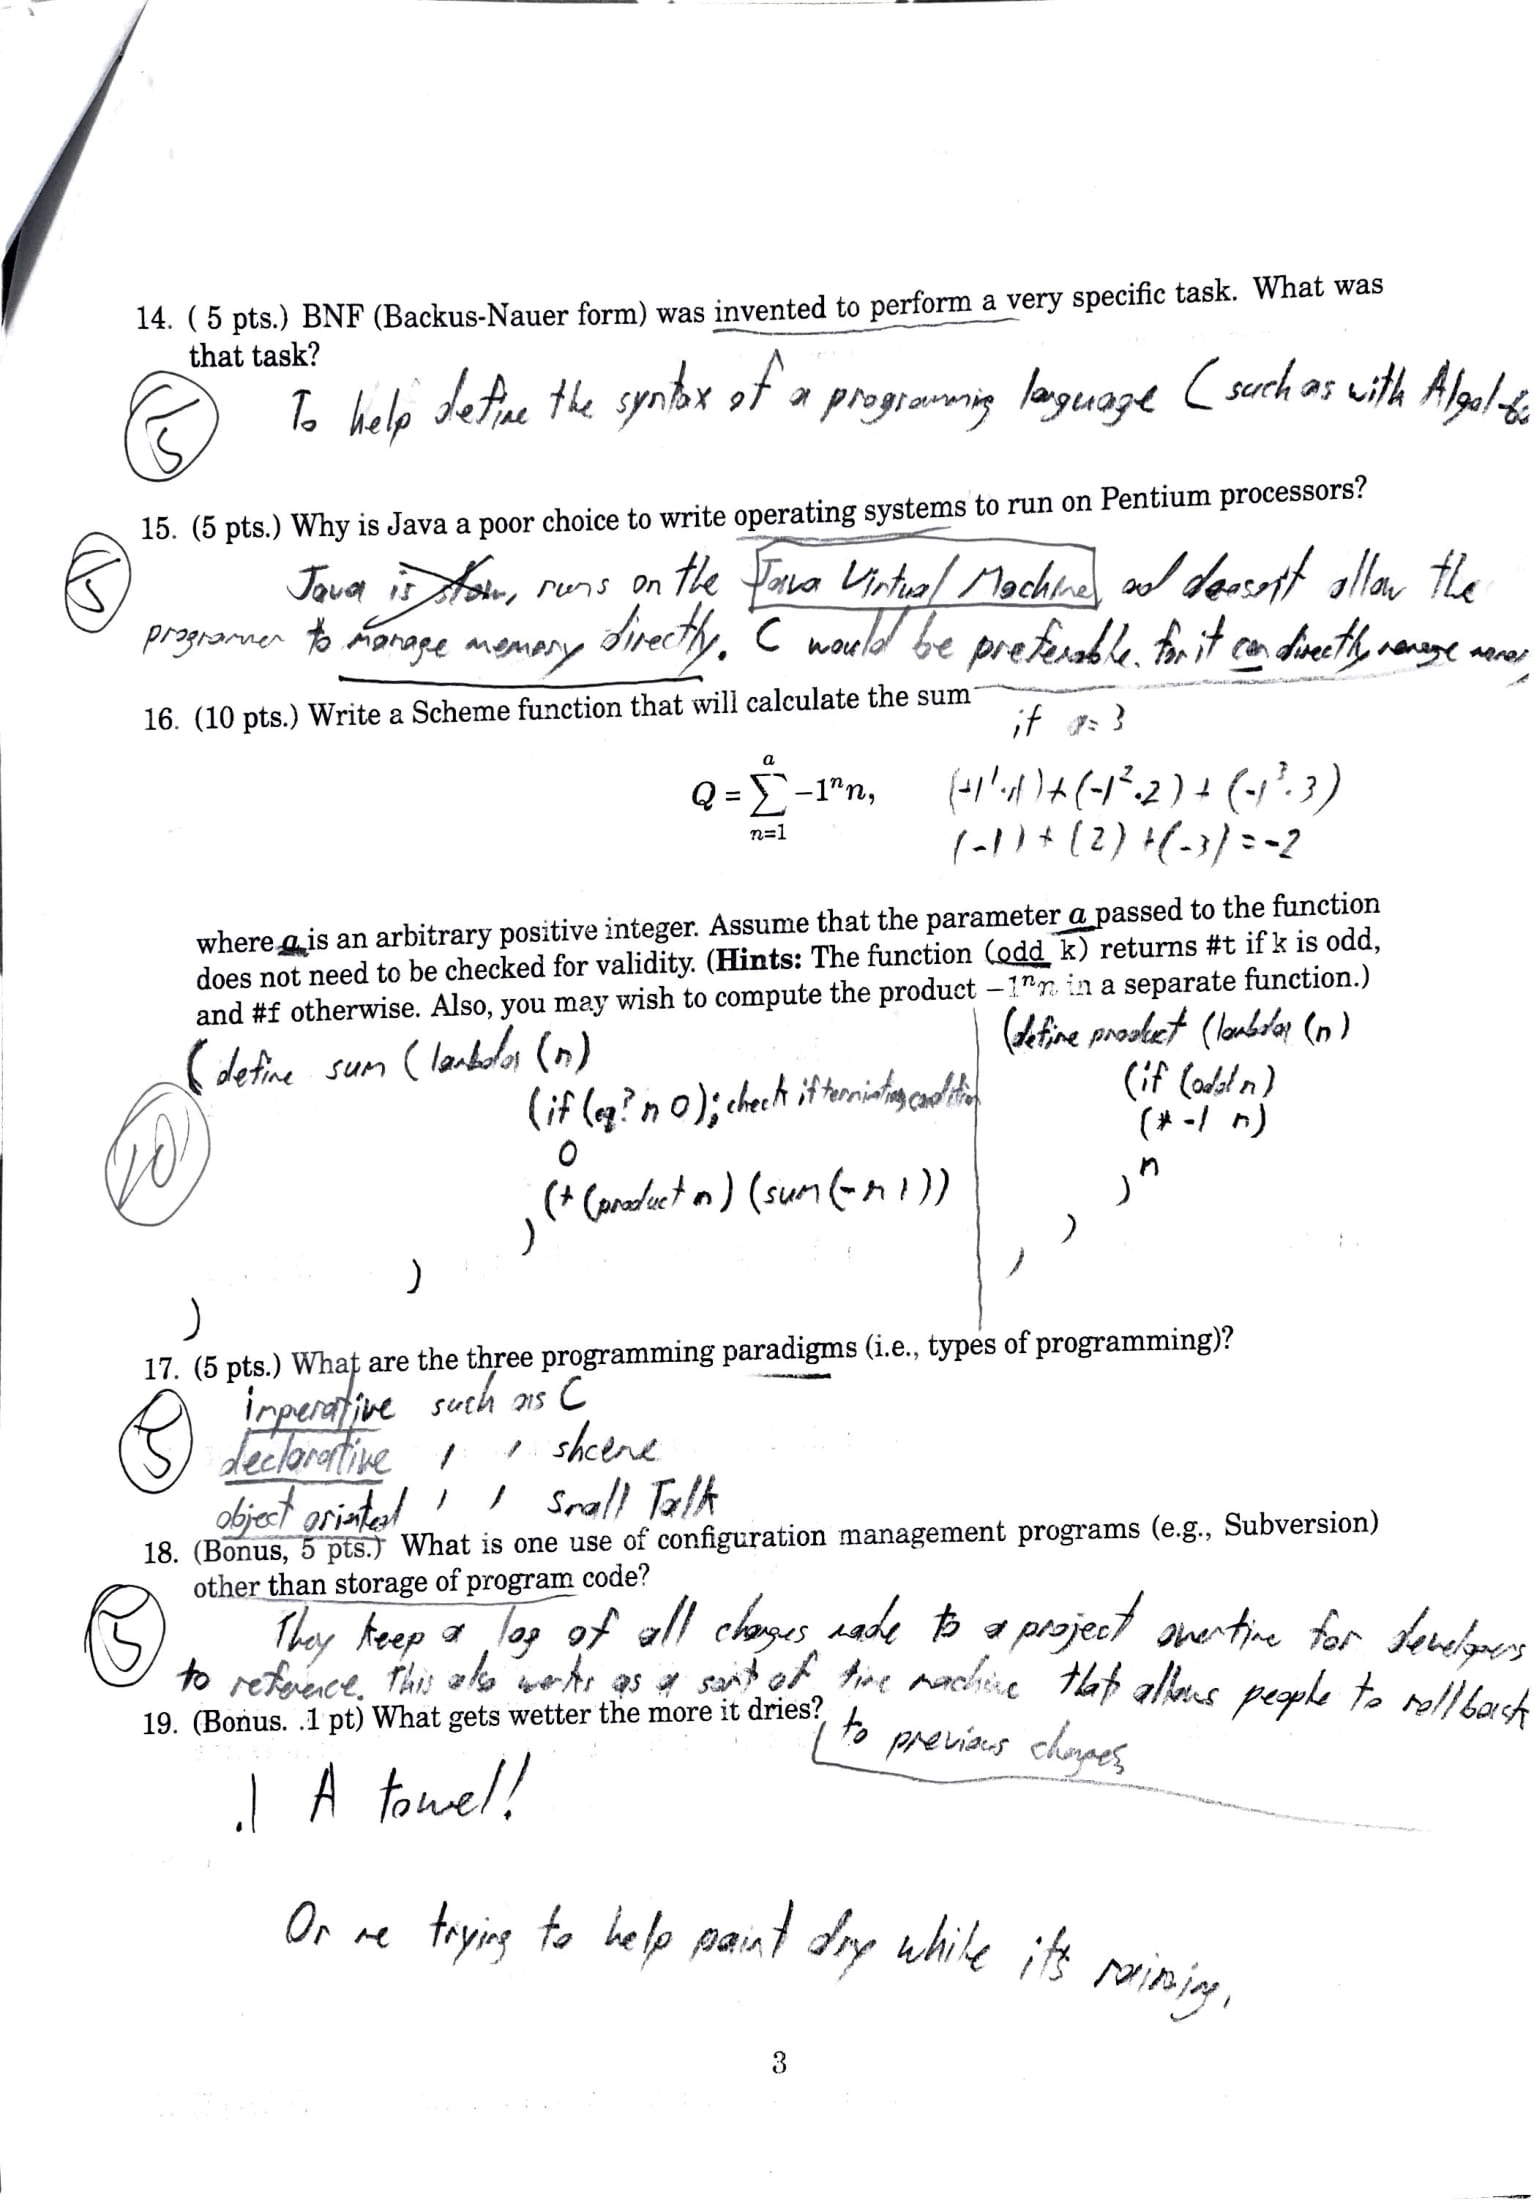 14. ( 5 pts.) BNF (Backus-Nauer form) was invented to perform a very specific task. What was
that task?
5
To help define the syntax of a programming language (such as with Algol-60
15. (5 pts.) Why is Java a poor choice to write operating systems to run on Pentium processors?
5
Java is slow, runs on the Java Virtual Machine, and doesn't allow the
programmer to manage memory directly. C would be preferable. for it can directly manage memory
16. (10 pts.) Write a Scheme function that will calculate the sum
if a=3
Q = ∑ᵃₙ₌₁ −1ⁿn,
(-1¹·1)+(-1²·2)+(-1³·3)
(-1)+(2)+(-3)=-2
where a is an arbitrary positive integer. Assume that the parameter a passed to the function
does not need to be checked for validity. (Hints: The function (odd k) returns #t if k is odd,
and #f otherwise. Also, you may wish to compute the product −1ⁿn in a separate function.)
(define sum (lambda (n)
(if (eq? n 0); check if terminating condition
0
(+ (product n) (sum (- n 1))
)
)
)
10
(define product (lambda (n)
(if (odd n)
(* -1 n)
n
)
)
)
17. (5 pts.) What are the three programming paradigms (i.e., types of programming)?
5
imperative such as C
declarative ' ' shceme
object oriented ' ' Small Talk
18. (Bonus, 5 pts.) What is one use of configuration management programs (e.g., Subversion)
other than storage of program code?
5
They keep a log of all changes made to a project overtime for developers
to reference. This also works as a sort of time machine that allows people to rollback
to previous changes
19. (Bonus. .1 pt) What gets wetter the more it dries?
.1 A towel!
Or me trying to help paint dry while it's raining.
3